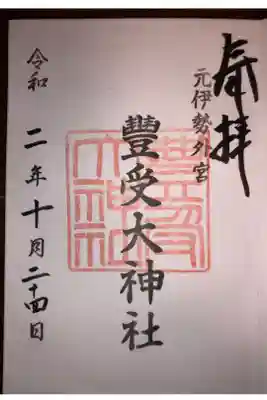 奉拝
元伊勢外宮
豐受大神社
令和二年十月二十四日